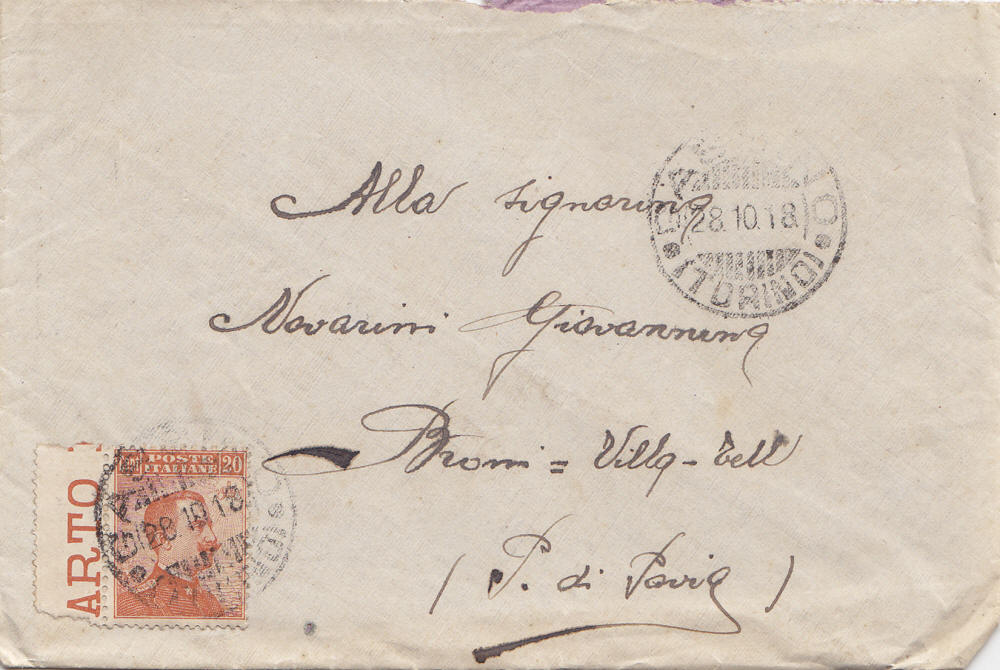 Alla signorina
28.10.18
(TORINO)
Navarini Giovannina
Broni = Villa-Tell
(P. di Pavia)
POSTE
ITALIANE 20
28 10 18
ARTO